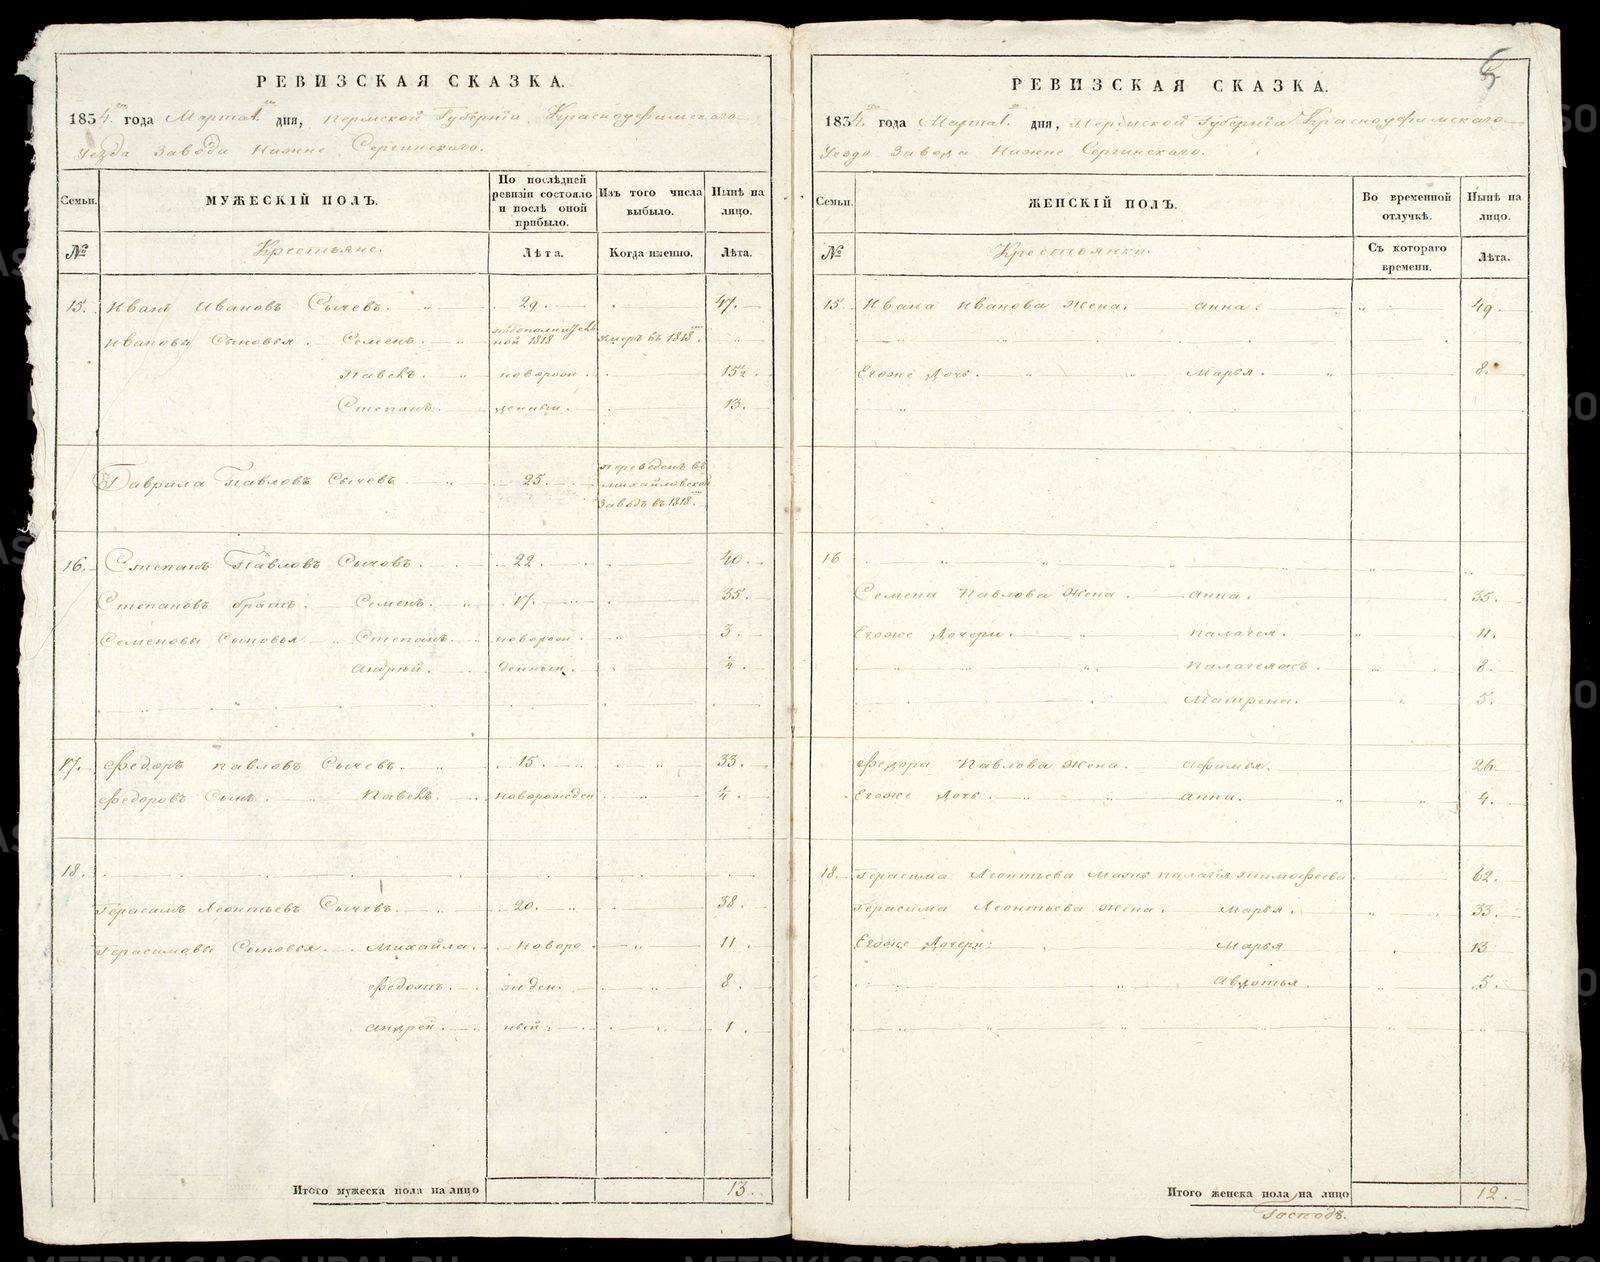 РЕВИЗСКАЯ СКАЗКА.
1834.го года Марта 1.го дня, Пермской Губернїи Красноуфимскаго
Уезда Завода Нижне Сергинскаго.
Семьи.
МУЖЕСКІЙ ПОЛЪ.
По послѣдней ревизіи состояло и послѣ оной прибыло.
Изъ того числа выбыло.
Нынѣ на лицо.
№
Крестьяне.
Лѣта.
Когда именно.
Лѣта.
15. Иванъ Ивановъ Сычевъ. 29. 47.
Ивановы Сыновья. Семенъ. ной 1818 умеръ въ 1818.го
Павелъ. новорож 15½
Степанъ. денныи. 13.
Гаврила Павловъ Сычевъ 25. Переведенъ въ Михайловской Заводъ въ 1818.го
16. Степанъ Павловъ Сычовъ. 22. 40.
Степановъ братъ. Семенъ. 17. 35.
Семеновы Сыновья Степанъ. новорож 3.
Андрѣй. денныи. ¼.
17. Федоръ Павловъ Сычевъ. 15. 33.
Федоровъ Сынъ. Павелъ. новорожден ¼.
18.
Герасимъ Леонтьевъ Сычевъ. 20. 38.
Герасимовы Сыновья. Михайла. новоро 11.
Федотъ. жден. 8.
Андрей. ный. 1.
Итого мужеска пола на лицо 13.
РЕВИЗСКАЯ СКАЗКА.
1834.го года Марта 1.го дня, Пермской Губернїи Красноуфимскаго
Уезда Завода Нижне Сергинскаго.
Семьи.
ЖЕНСКІЙ ПОЛЪ.
Во временной отлучкѣ.
Нынѣ на лицо.
№
Крестьянки.
Съ котораго времени.
Лѣта.
15. Ивана Иванова Жена. Анна. 49.
Егоже Дочь. Марья. 8.
16
Семена Павлова Жена. Анна. 35.
Егоже Дочери. Палагея. 11.
Палагеяжъ. 8.
Матрена. 5.
Федора Павлова Жена. Афимья. 26.
Егоже Дочь. Анна. 4.
18. Герасима Леонтьева Мать Палагїя Тимофеева 62.
Герасима Леонтьева Жена. Марья. 33.
Егоже Дочери: Марья 13
Авдотья. 5.
Итого женска пола на лицо 12.
Господъ.
METRIKI.GASO-URAL.RU
METRIKI.GASO-URAL.RU